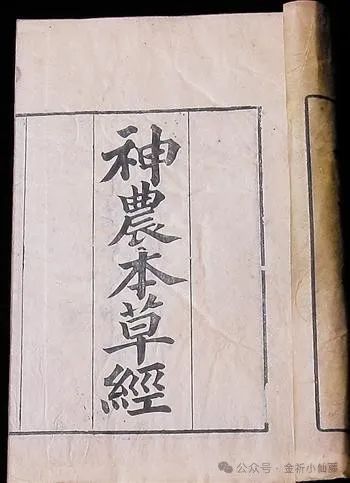 神農本草經
公众号·金祈小仙藤